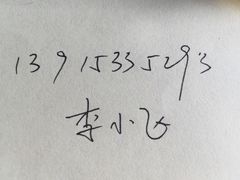 13915335293
李小飞